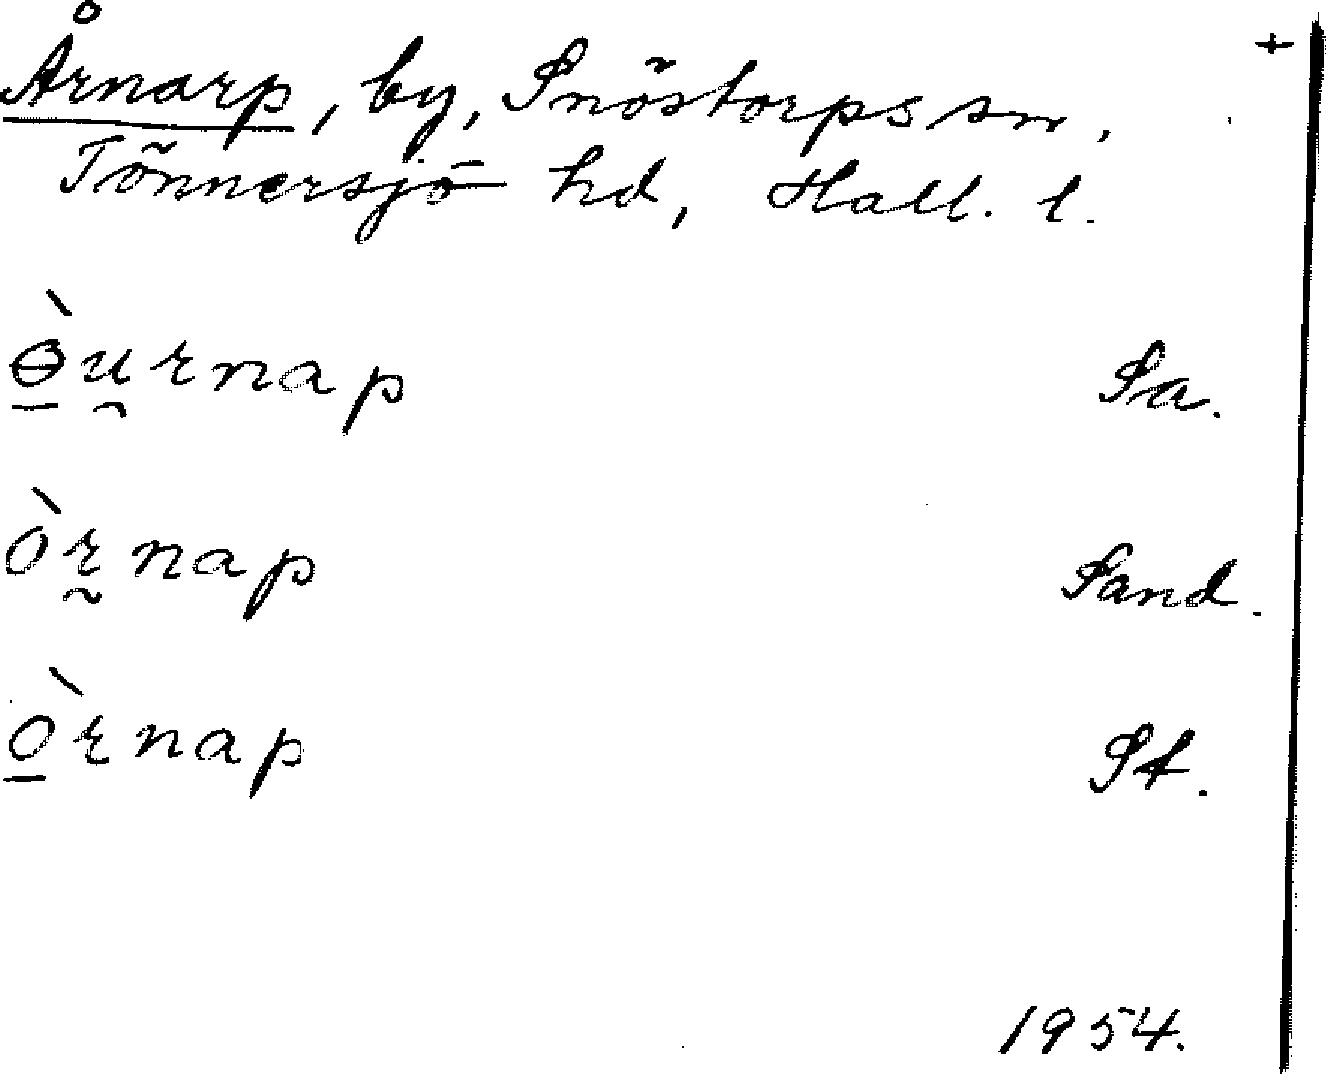 +
Årnarp, by, Snöstorps sn,
Tönnersjö hd, Hall. l.
ɵ̱̀u̯rnap Sa.
òr̰nap Sand.
ò̱rnap St.
1954.